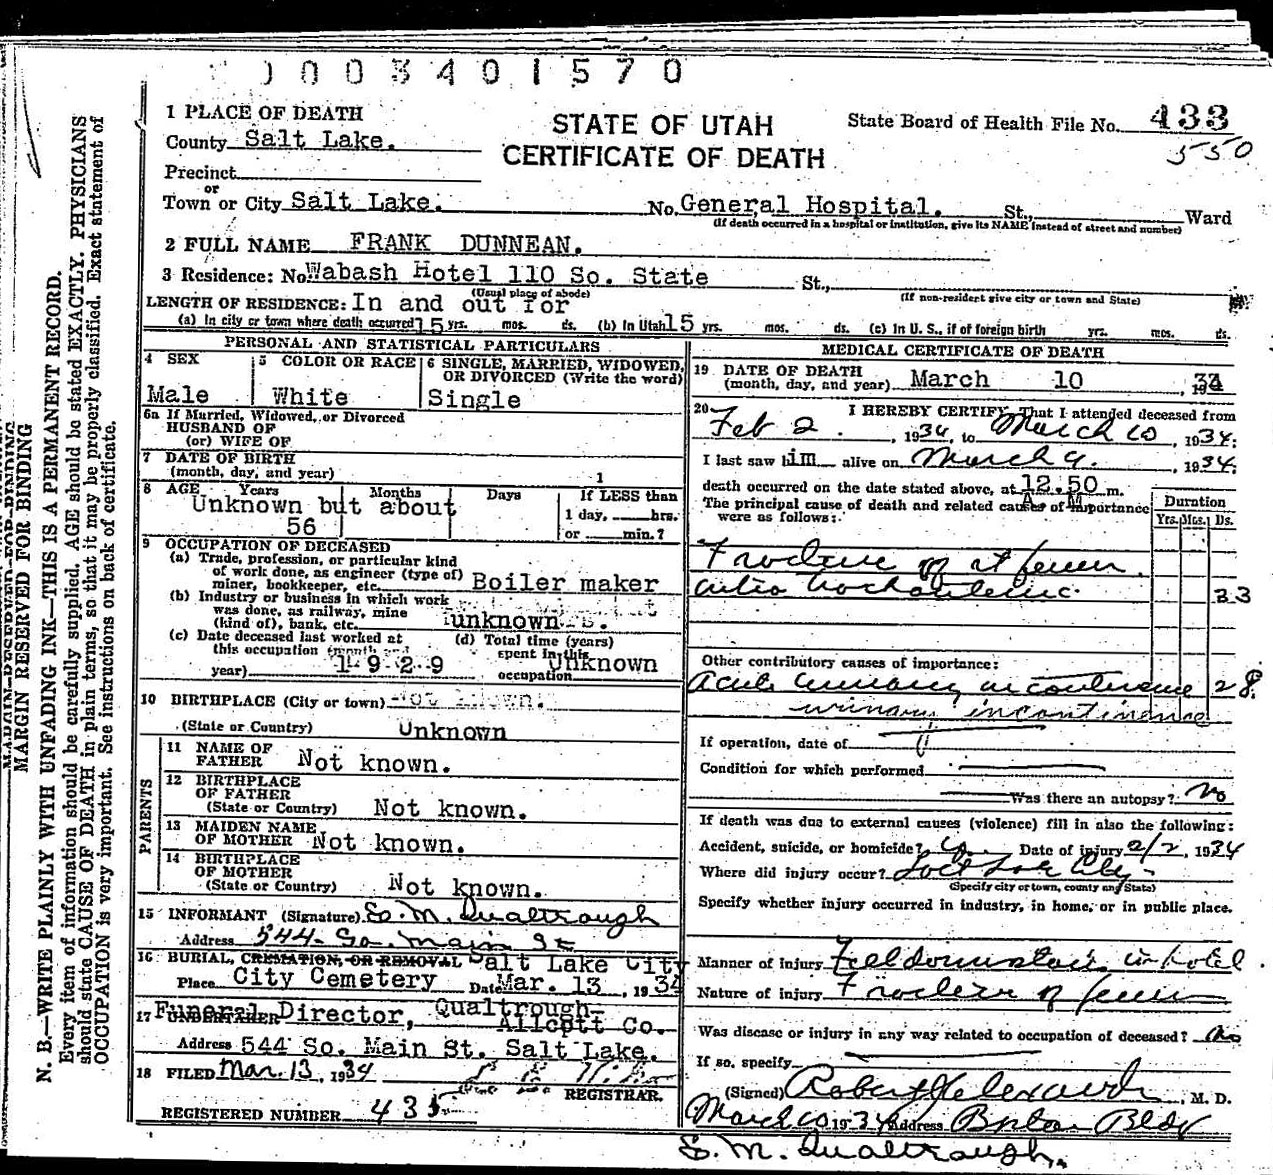 1003401570
1 PLACE OF DEATH
STATE OF UTAH
CERTIFICATE OF DEATH
State Board of Health File No. 433
550
County Salt Lake.
Precinct
or
Town or City Salt Lake. No. General Hospital. St., Ward
(If death occurred in a hospital or institution, give its NAME instead of street and number)
2 FULL NAME FRANK DUNNEAN.
3 Residence: No. Wabash Hotel 110 So. State St.,
(Usual place of abode) (If non-resident give city or town and State)
LENGTH OF RESIDENCE: In and out for
(a) In city or town where death occurred 15 yrs. mos. ds. (b) In Utah 15 yrs. mos. ds. (c) In U. S., if of foreign birth yrs. mos. ds.
PERSONAL AND STATISTICAL PARTICULARS
4 SEX
Male
5 COLOR OR RACE
White
6 SINGLE, MARRIED, WIDOWED, OR DIVORCED (Write the word)
Single
6a If Married, Widowed, or Divorced
HUSBAND OF
(or) WIFE OF
7 DATE OF BIRTH
(month, day, and year) 1
8 AGE Years Months Days If LESS than
Unknown but about 1 day, hrs.
56 or min.?
9 OCCUPATION OF DECEASED
(a) Trade, profession, or particular kind
of work done, as engineer (type of)
miner, bookkeeper, etc. Boiler maker
(b) Industry or business in which work
was done, as railway, mine
(kind of), bank, etc. unknown
(c) Date deceased last worked at
this occupation (month and
year) 1929
(d) Total time (years)
spent in this
occupation Unknown
10 BIRTHPLACE (City or town) Not known.
(State or Country) Unknown
PARENTS
11 NAME OF
FATHER Not known.
12 BIRTHPLACE
OF FATHER
(State or Country) Not known.
13 MAIDEN NAME
OF MOTHER Not known.
14 BIRTHPLACE
OF MOTHER
(State or Country) Not known.
15 INFORMANT (Signature) S. M. Qualtrough
Address 544 So. Main St
16 BURIAL, CREMATION, OR REMOVAL Salt Lake City
Place City Cemetery Date Mar. 13, 1934
17 UNDERTAKER Funeral Director, Qualtrough-
Allcott Co.
Address 544 So. Main St. Salt Lake.
18 FILED Mar. 13, 1934
REGISTRAR.
REGISTERED NUMBER 435
MEDICAL CERTIFICATE OF DEATH
19 DATE OF DEATH
(month, day, and year) March 10 1934
20 I HEREBY CERTIFY, That I attended deceased from
Feb 2, 1934, to March 10, 1934;
I last saw him alive on March 9. , 1934;
death occurred on the date stated above, at 12.50 m.
A M.
The principal cause of death and related causes of importance
were as follows:
Duration
Yrs. Mos. Ds.
Fracture of rt femur
33
Other contributory causes of importance:
Acute urinary incontinence 28
urinary incontinence
If operation, date of
Condition for which performed
Was there an autopsy? No
If death was due to external causes (violence) fill in also the following:
Accident, suicide, or homicide? Date of injury 2/2, 1934
Where did injury occur? Salt Lake City
(Specify city or town, county and State)
Specify whether injury occurred in industry, in home, or in public place.
Manner of injury Fell down stairs in hotel.
Nature of injury Fracture of femur
Was disease or injury in any way related to occupation of deceased? No
If so, specify
(Signed) Robert Alexander, M. D.
March 10 1934 Address Boston Bldg
S. M. Qualtrough.
MARGIN RESERVED FOR BINDING
N. B.—WRITE PLAINLY WITH UNFADING INK—THIS IS A PERMANENT RECORD.
Every item of information should be carefully supplied. AGE should be stated EXACTLY. PHYSICIANS
should state CAUSE OF DEATH in plain terms, so that it may be properly classified. Exact statement of
OCCUPATION is very important. See instructions on back of certificate.